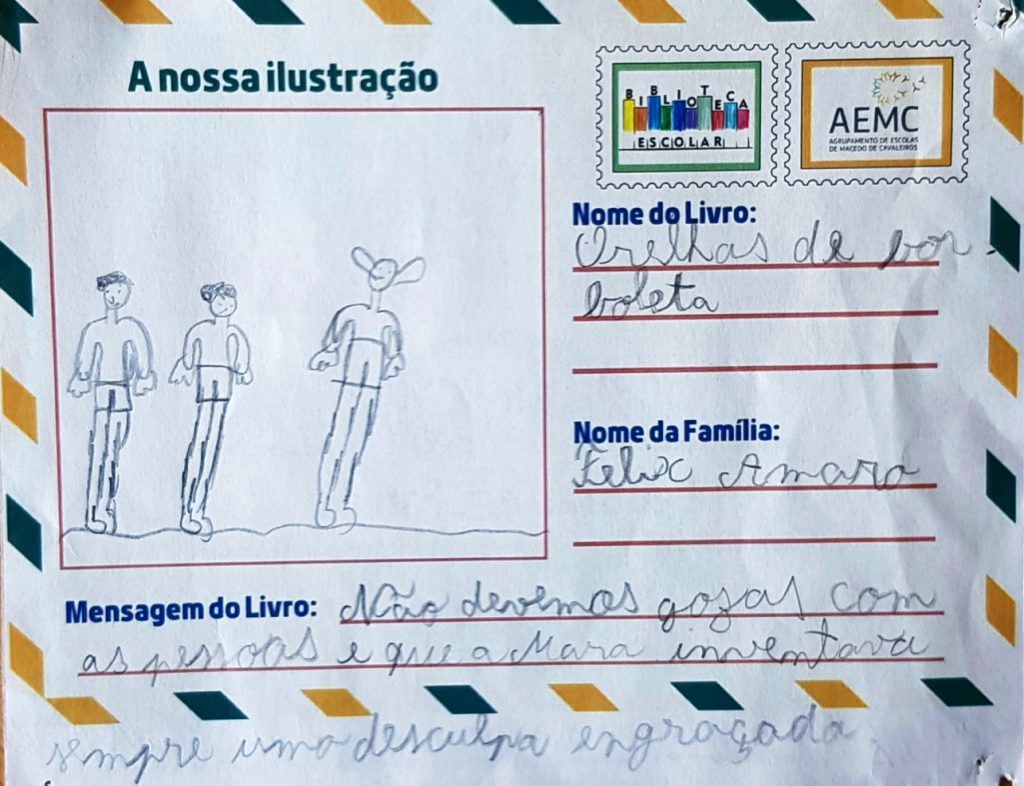 A nossa ilustração
BIBLIOTECA
ESCOLAR
AEMC
AGRUPAMENTO DE ESCOLAS
DE MACEDO DE CAVALEIROS
Nome do Livro:
Orelhas de bor-
boleta
Nome da Família:
Felix Amaro
Mensagem do Livro: Não devemos gozas com
as pessoas e que a Mara inventava
sempre uma desculpa engraçada